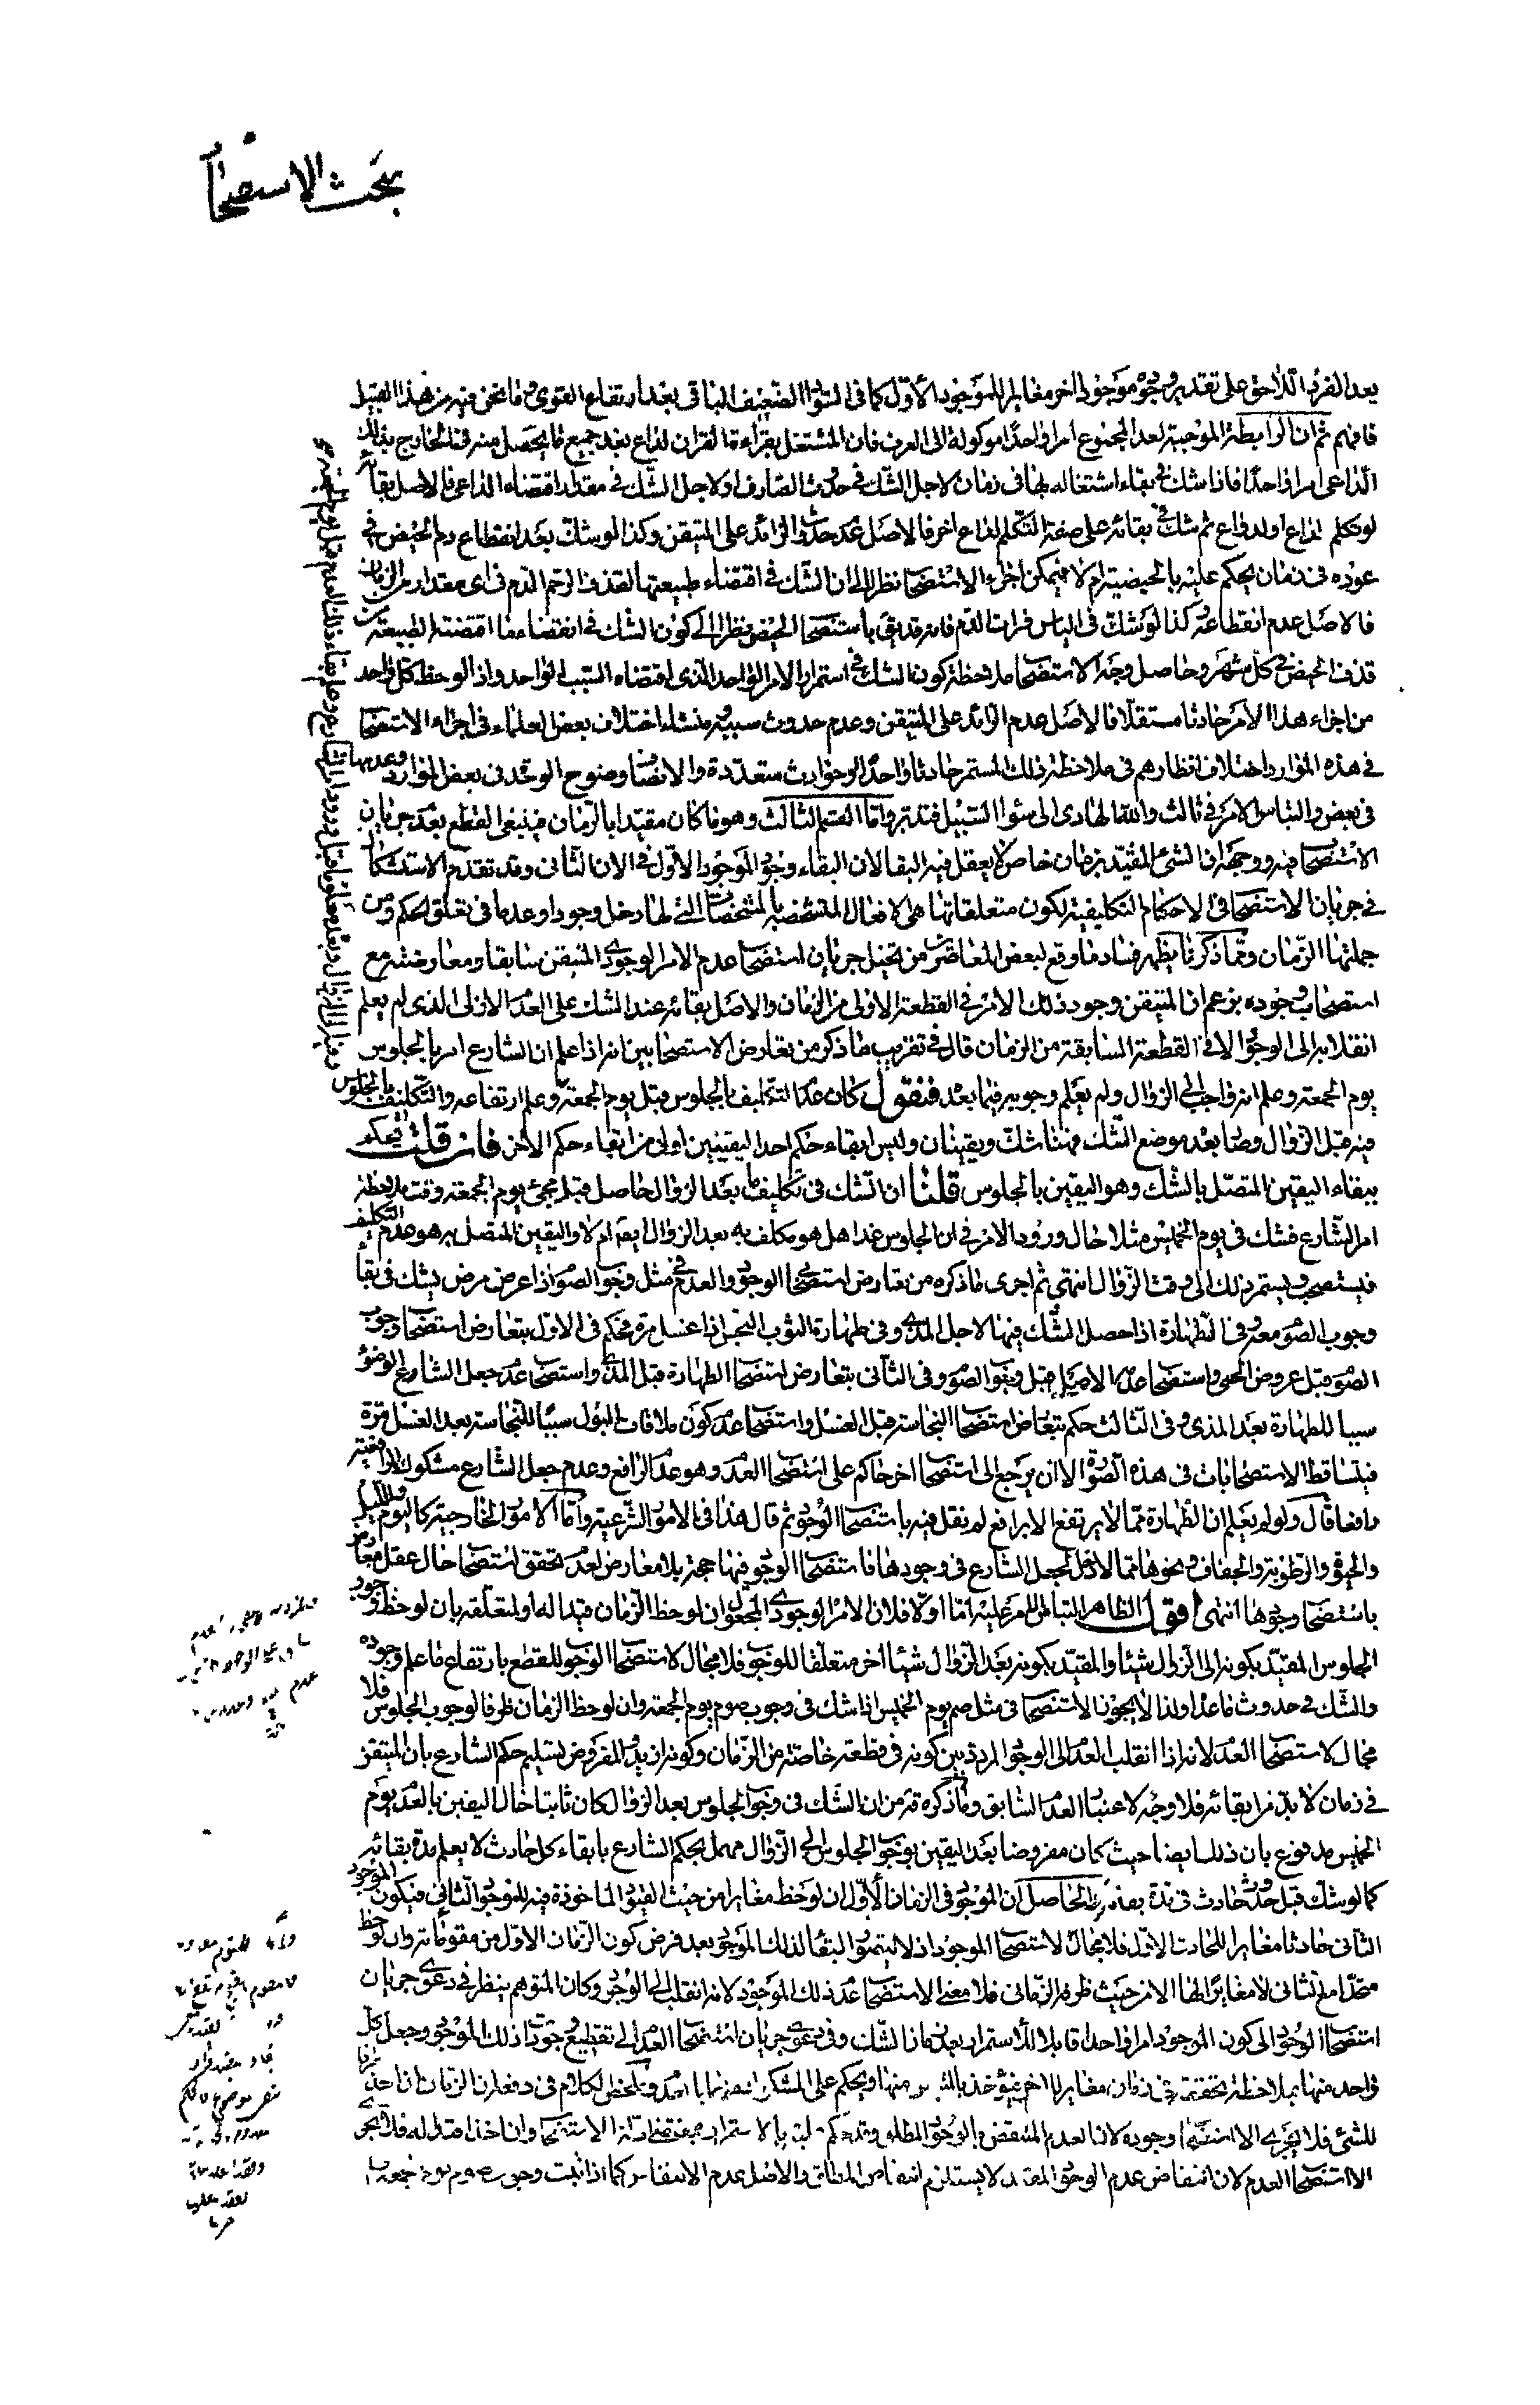 بحث الاستصحاب
بعد الفرد اللاحق على تقدير وجوده موجودا اخر مغاير للموجود الأوّل كما في السّواد الضّعيف الباقي بعد ارتفاع القوى وما نحن فيه من هذا القبيل
فافهم ثم ان الرابطة الموجبة لعد المجموع امرا واحدًا موكولة الى العرف فان المشتغل بقراءة القران لداع يعد جميع ما يحصل منه في الخارج بذلك
الدّاعى امرا واحدًا فاذا شك في بقاء اشتغاله بها في زمان لاجل الشّك في حدوث الصّارف او لاجل الشّك في مقدار اقتضاء الداعى فالاصل بقائه
لو تكلم لداع او لدواع ثم شك في بقائه على صفة التّكلم لداع اخر فالاصل عدم حدوث الزائد على المتيقن وكذا لو شك بعد انقطاع دم الحيض في
عوده في زمان يحكم عليه بالحيضية ام لا فيمكن اجراء الاستصحاب نظرا الى ان الشّك في اقتضاء طبيعتها لقذف الرحم الدّم في اى مقدار من الزمان
فالاصل عدم انقطاعه وكذا لو شك في الياس فرات الدّم فانه قد يق باستصحاب الحيض نظرا الى كون الشك في انقضاء ما اقتضته الطبيعة من
قذف الحيض في كل شهر وحاصل وجه الاستصحاب ملاحظة كون الشك في استمرار الامر الواحد الذى اقتضاه السّبب الواحد واذا لوحظ كل واحد
من اجزاء هذا الامر حادثا مستقلا فالاصل عدم الزائد على المتيقن وعدم حدوث سببه ومنشاء اختلاف بعض العلماء في اجراء الاستصحاب
في هذه الموارد اختلاف انظارهم في ملاحظة ذلك المستمر حادثا واحدًا او حوادث متعدّدة والانصاف وضوح الوحدة في بعض الموارد وعدمها
في بعض والتباس الامر في ثالث واللّه الهادى الى سواء السّبيل فتدبر وامّا القسم الثالث وهو ما كان مقيدا بالزّمان فينبغى القطع بعدم جريان
الاستصحاب فيه ووجهه ان الشئ المقيّد بزمان خاص لا يعقل فيه البقاء لان البقاء وجود الموجود الأوّل في الان الثانى وقد تقدّم الاستشكال
في جريان الاستصحاب في الاحكام التكليفية لكون متعلقاتها هى الافعال المتشخصة بالمشخصات التى لها دخل وجودا وعدما في تعلق الحكم ومن
جملتها الزّمان وممّا ذكرنا يظهر فساد ما وقع لبعض المعاصرين من تخيل جريان استصحاب عدم الامر الوجودى المتيقن سابقا ومعارضته مع
استصحاب وجوده بزعم ان المتيقن وجود ذلك الأمر في القطعة الاولى من الزمان والاصل بقائه عند الشك على العدم الازلى الذى لم يعلم
انقلابه الى الوجود الا في القطعة السابقة من الزمان قال في تقريب ما ذكر من تعارض الاستصحابين انه اذا علم ان الشارع امر بالجلوس
يوم الجمعة وعلم انه واجب الى الزوال ولم يعلم وجوبه فيما بعد فنقول كان عدم التكليف بالجلوس قبل يوم الجمعة وعلم ارتفاعه والتّكليف بالجلوس
فيه قبل الزوال وصار بعد موضع الشّك فهنا شك ويقينان وليس ابقاء حكم احد اليقينين اولى من ابقاء حكم الاخر فان قلت نحكم
ببقاء اليقين المتصل بالشك وهو اليقين بالجلوس قلنا ان الشّك في تكليف ما بعد الزوال حاصل قبل مجئ يوم الجمعة وقت ملاحظة
امر الشّارع فشك في يوم الخميس مثلا حال ورود الامر في ان الجلوس غدا هل هو مكلف به بعد الزوال ايضا ام لا واليقين المتصل به هو عدم التكليف
فيستصحب ويستمر ذلك الى وقت الزّوال انتهى ثم اجرى ما ذكره من تعارض استصحابى الوجود والعدم في مثل وجوب الصوم اذا عرض مرض يشك في بقاء
وجوب الصوم معه وفى الطّهارة اذا حصل الشّك فيها لاجل المذى وفى طهارة الثوب النجس اذا غسل مرة فحكم في الاوّل بتعارض استصحاب وجوب
الصوم قبل عروض الحمى واستصحاب عدمه الاصلى قبل وجوب الصوم وفى الثانى بتعارض استصحاب الطهارة قبل المذى واستصحاب عدم جعل الشّارع الوضوء
سببا للطهارة بعد المذى وفى الثالث حكم بتعارض استصحاب النجاسة قبل الغسل واستصحاب عدم كون ملاقات البول سببًا للنّجاسة بعد الغسل مرّة
فيتساقط الاستصحابان في هذه الصّور الا ان يرجع الى استصحاب اخر حاكم على استصحاب العدم وهو عدم الرافع وعدم جعل الشّارع مشكوك الرافعية
رافعا قال ولو لم يعلم ان الطّهارة ممّا لا يرتفع الا برافع لم نقل فيه باستصحاب الوجود ثم قال هذا في الامور الشّرعية وأمّا الامور الخارجية كاليوم والليل
والحيوة والرّطوبة والجفاف ونحوها ممّا لا دخل لجعل الشارع في وجودها فاستصحاب الوجود فيها حجة بلا معارض لعدم تحقق استصحاب حال عقل معارض
باستصحاب وجودها انتهى اقول الظاهر التباس الامر عليه امّا اولا فلان الامر الوجودى المجعول ان لوحظ الزّمان قيدا له او لمتعلّقه بان لوحظ وجوب
الجلوس المقيّد بكونه الى الزوال شيئا والمقيّد بكونه بعد الزوال شيئا اخر متعلقا للوجوب فلا مجال لاستصحاب الوجوب للقطع بارتفاع ما علم وجوده
والشّك في حدوث ما عداه ولذا لا يجوز الاستصحاب في مثل صم يوم الخميس اذا شك في وجوب صوم يوم الجمعة وان لوحظ الزمان ظرفا لوجوب الجلوس فلا
مجال لاستصحاب العدم لانه اذا انقلب العدم الى الوجود المردد بين كونه في قطعة خاصّة من الزّمان وكونه ازيد والمفروض تسليم حكم الشارع بان المتيقن
في زمان لا بدّ من ابقائه فلا وجه لاعتبار العدم السّابق وما ذكره قده من ان الشّك في وجوب الجلوس بعد الزوال كان ثابتا حال اليقين بالعدم يوم
الخميس مدفوع بان ذلك ايضا حيث كان مفروضا بعد اليقين بوجوب الجلوس الى الزّوال مهمل بحكم الشارع بابقاء كل حادث لا يعلم مدة بقائه
كما لو شك قبل حدوث حادث في مدة بقائه والحاصل ان الموجود في الزمان الأوّل ان لوحظ مغايرا من حيث القيود الماخوذة فيه للموجود الثانى فيكون الموجود
الثانى حادثا مغايرا للحادث الاوّل فلا مجال لاستصحاب الموجود اذ لا يتصور البقاء لذلك الموجود بعد فرض كون الزّمان الاوّل من مقوماته وان لوحظ
متحدا مع الثانى لا مغايرا لها الا من حيث ظرفه الزّمانى فلا معنى لاستصحاب عدم ذلك الموجود لانه انقلب الى الوجود وكان المتوهم ينظر في دعوى جريان
استصحاب الوجود الى كون الموجود امرا واحدا قابلا للاستمرار بعد زمان الشّك وفى دعوى جريان استصحاب العدم الى تقطيع وجودات ذلك الموجود وجعل كل
واحد منها بملاحظة تحققه في زمان مغايرا للاخر فيؤخذ بالمتيقن منها ويحكم على المشكوك منها بالعدم وملخص الكلام في دفعه ان الزّمان ان اخذ ظرفا
للشئ فلا يجرى الا استصحاب وجوده لان العدم انتقض بالوجود المطلق وقد حكم عليه بالاستمرار بمقتضى ادلة الاستصحاب وان اخذ قيدا له فلا يجرى
الا استصحاب العدم لان انتقاض عدم الوجود المقيد لا يستلزم انتقاض المطلق والاصل عدم الانتقاض كما اذا ثبت وجوب صوم يوم الجمعة